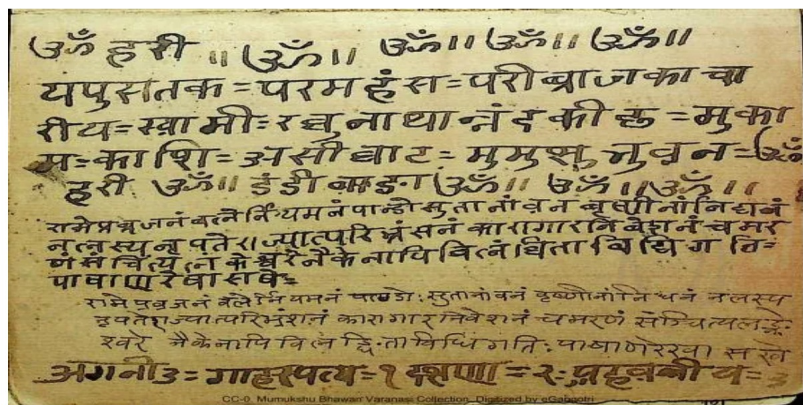 ॐ हरी ॥ ॐ ॥ ॐ ॥ ॐ ॥ ॐ ॥
यपुसतक = परमहंस = परीब्राजकाचा
रीय = स्वामीः रघुनाथान्नंदकी = मुका
मः काशि = असीघाट = मुमुक्षु भुवन = ॐ
हरी ॐ ॥ डंडी बाडा ॐ ॥ ॐ ॥ ॐ ॥
रामे प्रब्रजनं वलेर्नियमनं पान्डोसुतानां वनं वृष्णीनां निधनं
नलस्य नृपते राज्यात्परिभ्रंसनं कारागारनिवेशनं चमर
णं संचिंत्य लंकेश्वरं नैकेनापि विलंघिता विधिगतिः
पाषाणरेवासवेः
रामे प्रव्रजनं वलेर्नियमनं पाण्डोः सुतानां वनं वृष्णीनां निधनं नलस्य
नृपतेराज्यात्परिभ्रंशनं कारागारनिवेशनं चमरणं संञ्चित्यलङ्के
श्वरं नैकेनापि विलङ्घिता विधिगतिः पाषाणरेखा सखे
अगनी३ = गाहस्पत्य = १ दक्षणा = २ः
CC-0. Mumukshu Bhawan Varanasi Collection. Digitized by eGangotri